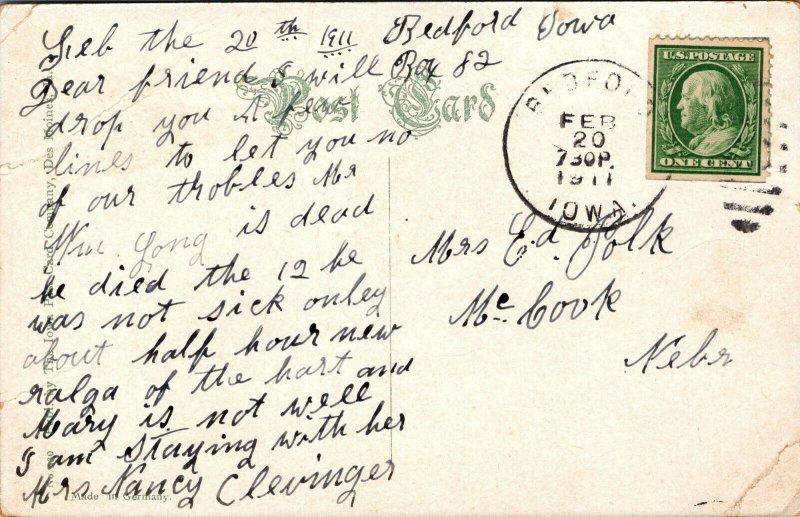 Feb the 20 th 1911 Bedford Iowa
Box 82
Dear friend I will
drop you A few
lines to let you no
of our trobles Mr
Wm Long is dead
he died the 12 he
was not sick onley
about half hour new
ralga of the hart and
Mary is not well
I am staying with her
Mrs Nancy Clevinger
Post Card
Made in Germany.
BEDFORD
FEB
20
730P.
1911
IOWA.
U.S. POSTAGE
ONE CENT
Mrs Ed. Polk
Mc Cook
Nebr
Post Card Company, Des Moines